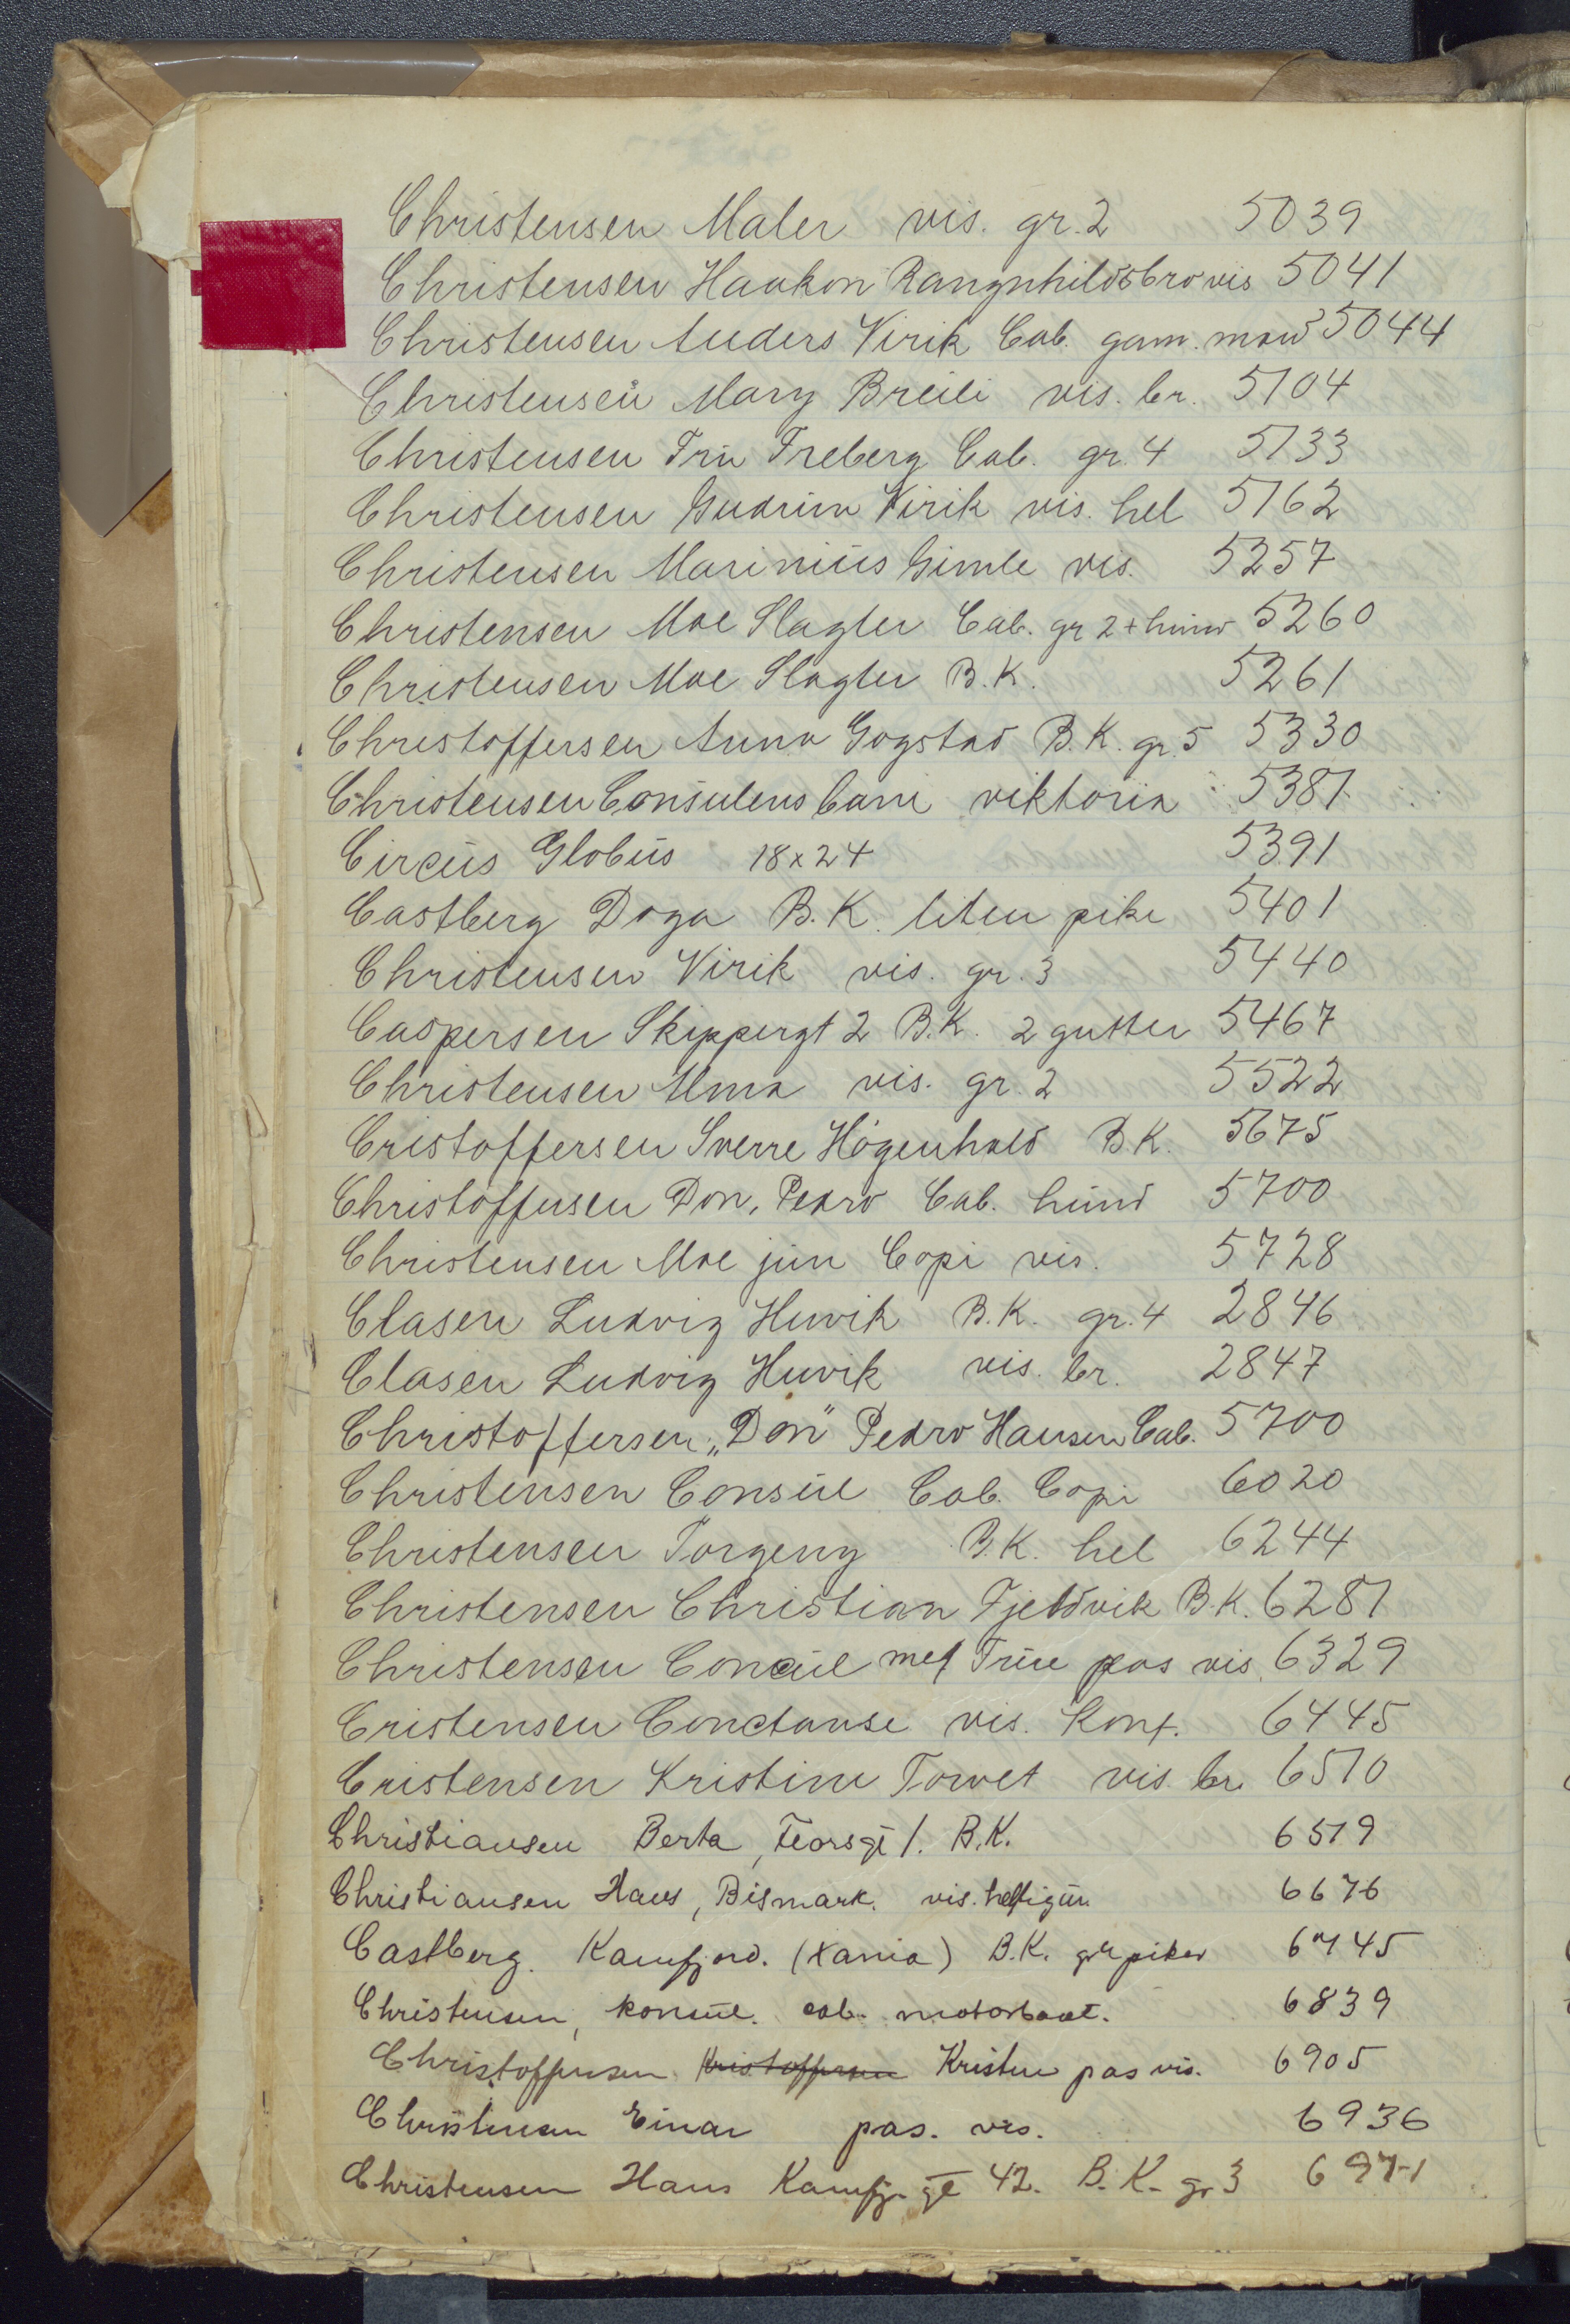 Christensen Maler vis. gr. 2 5039
Christensen Haakon Rangnhildsbro vis 5041
Christensen Anders Virik Cab. gam. mand 5044
Christensen Mary Breili vis. br. 5104
Christensen Frü Freberg Cab. gr. 4 5133
Christensen Gudrün Virik vis. hel 5162
Christensen Marinüs Gimle vis. 5257
Christensen Moe Slagter Cab. gr 2 + hünd 5260
Christensen Moe Slagter B.K. 5261
Christoffersen Anna Gogstad B.K. gr. 5 5330
Christensen Consulens Cani viktoria 5381
Circüs Globüs 18x24 5391
Castberg Doga B.K. liten pike 5401
Christensen Virik vis. gr. 3 5440
Caspersen Skippergt 2 B.K. 2 gutter 5467
Christensen Alma vis. gr. 2 5522
Cristoffersen Sverre Högenhald B.K. 5675
Christoffersen Don, Pedro Cab. hünd 5700
Christensen Moe jün Copi vis. 5728
Clasen Ludvig Huvik B.K. gr. 4 2846
Clasen Ludvig Huvik vis. br. 2847
Christoffersen „Don" Pedro Hansen Cab. 5700
Christensen Consül Cab. Copi 6020
Christensen Torgeny B.K. hel 6244
Christensen Christian Fjeldvik B.K. 6281
Christensen Concül med Früe pas vis. 6329
Cristensen Conctanse vis. Konf. 6445
Cristensen Kristine Torvet vis. br. 6510
Christiansen Berta, Teorsgt 1. B.K. 6519
Christiansen Hans, Bismark. vis. helfigür. 6676
Castberg. Kamfjord. (Xania) B.K. gr 4 piker 6745
Christensen, konsül. cab. motorbaat. 6839
Christoffersen Kristoffersen Kristine pas vis. 6905
Christensen Einar pas. vis. 6936
Christensen Hans Kamfj. gt 42. B.K. gr 3 6971